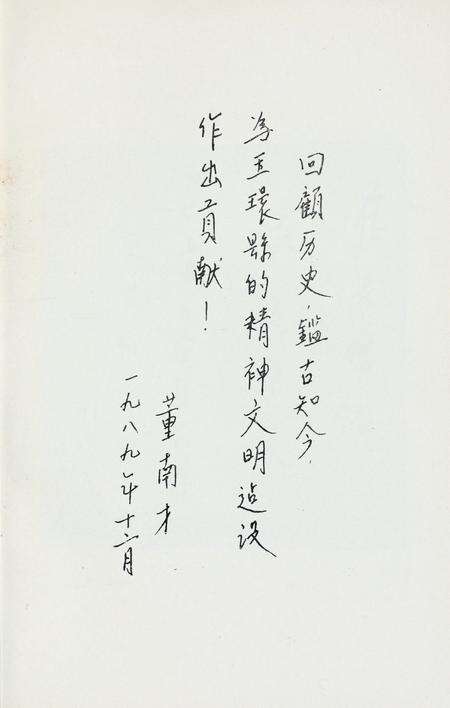 回顧历史，鑑古知今，
为玉環縣的精神文明建设
作出貢献！
董南才
一九八九年十二月